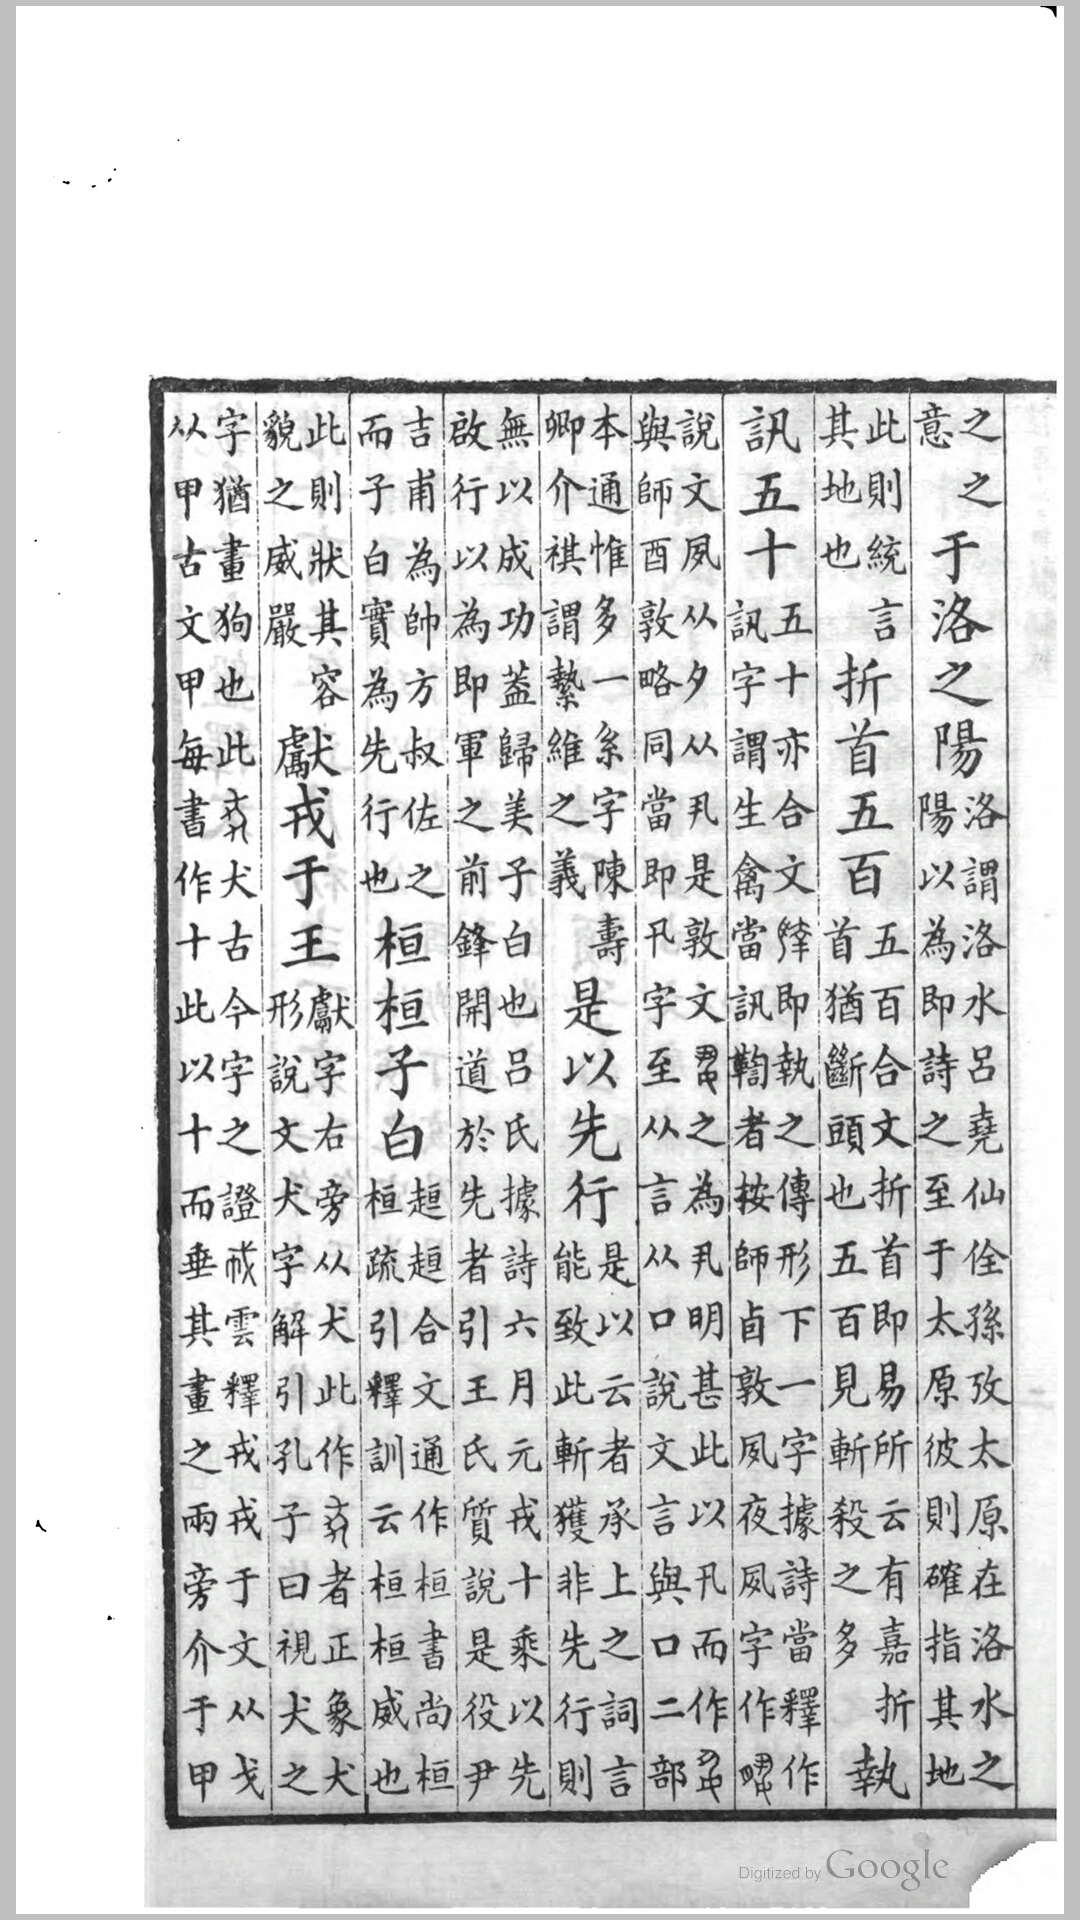 之之
意
于洛之陽
洛謂洛水呂堯仙佺孫攷太原在洛水之
陽以為即詩之至于太原彼則確指其地
此則統言
其地也
折首五百
五百合文折首即易所云有嘉折
首猶斷頭也五百見斬殺之多
執
訊五十
五十亦合文即執之傳形下一字據詩當釋作
訊字謂生禽當訊鞫者按師卣敦夙夜夙字作
說文夙从夕从丮是敦文之為丮明甚此以卂而作
與師酉敦略同當即卂字至从言从口說文言與口二部
本通惟多一糸字陳壽
卿介祺謂縶維之義
是以先行
是以云者承上之詞言
能致此斬獲非先行則
無以成功蓋歸美子白也呂氏據詩六月元戎十乘以先
啟行以為即軍之前鋒開道於先者引王氏質說是役尹
吉甫為帥方叔佐之
而子白實為先行也
桓桓子白
趄趄合文通作桓書尚桓
桓疏引釋訓云桓桓威也
此則狀其容
貌之威嚴
獻戎于王
獻字右旁从犬此作者正象犬
形說文犬字解引孔子曰視犬之
字猶畫狗也此犬古今字之證雲釋戎戎于文从戈
从甲古文甲每書作十此以十而垂其畫之兩旁介于甲
Digitized by Google